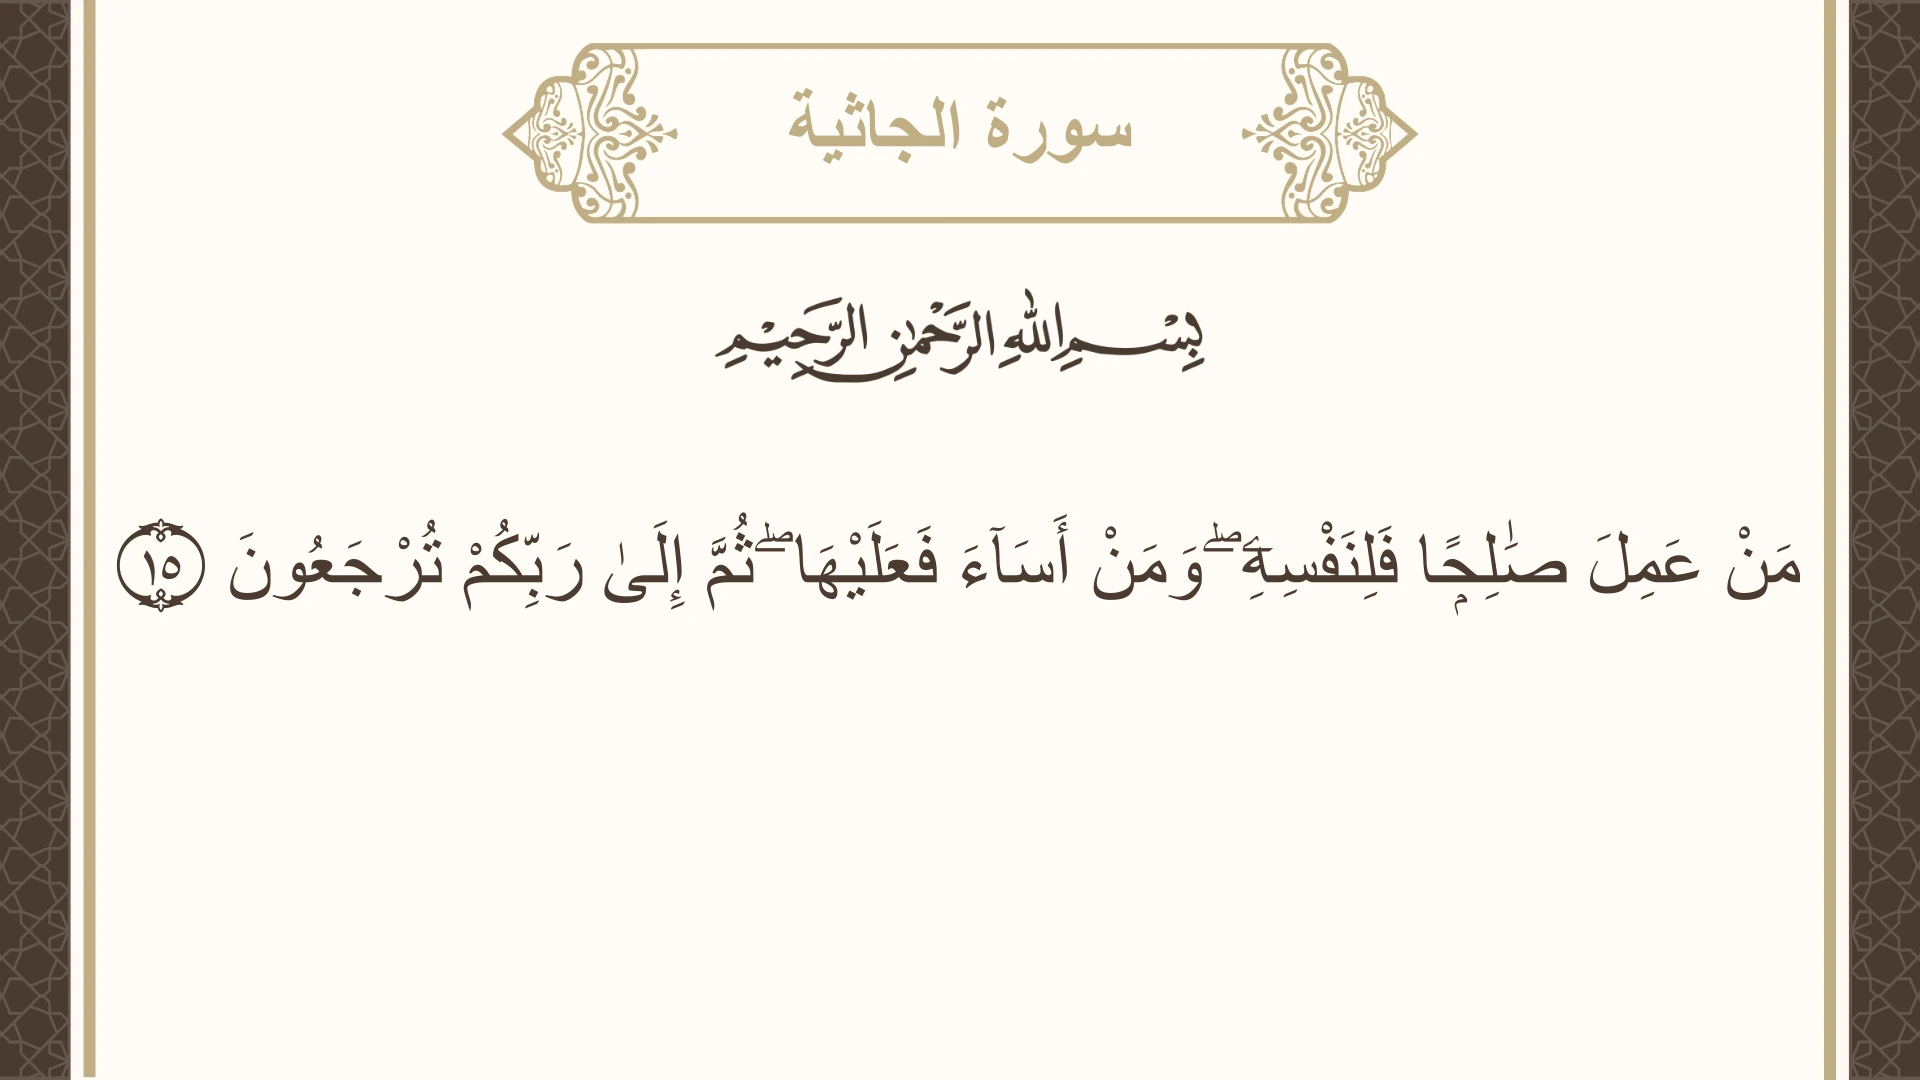 سورة الجاثية
بِسْمِ اللهِ الرَّحْمٰنِ الرَّحِيْمِ
مَنْ عَمِلَ صَٰلِحًۭا فَلِنَفْسِهِۦ ۖ وَمَنْ أَسَآءَ فَعَلَيْهَا ۖ ثُمَّ إِلَىٰ رَبِّكُمْ تُرْجَعُونَ ١٥